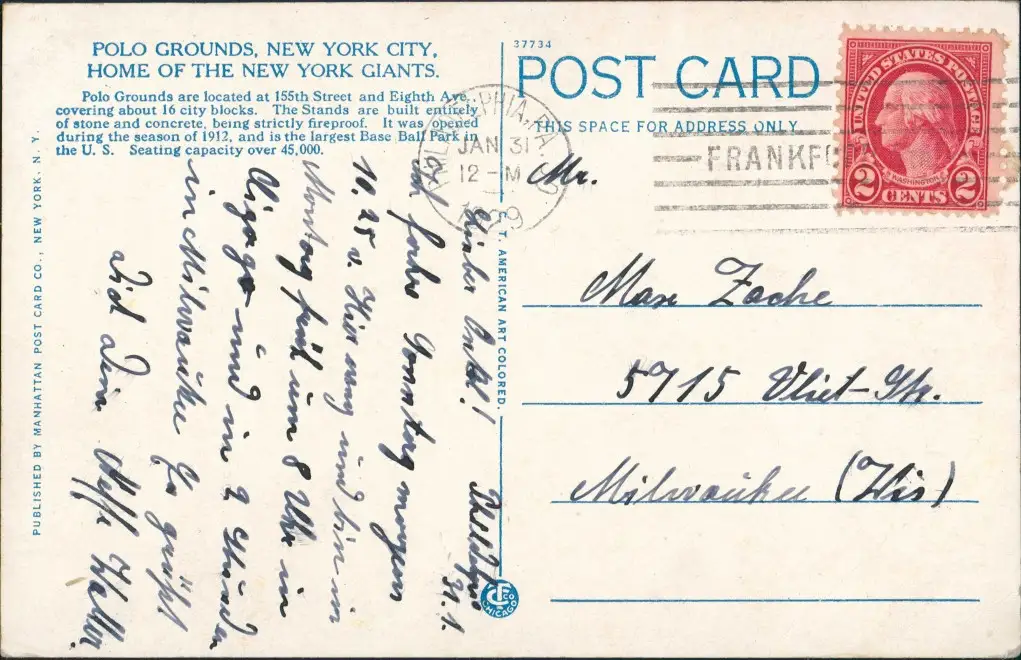 POLO GROUNDS, NEW YORK CITY,
HOME OF THE NEW YORK GIANTS.
Polo Grounds are located at 155th Street and Eighth Ave.,
covering about 16 city blocks. The Stands are built entirely
of stone and concrete, being strictly fireproof. It was opened
during the season of 1912, and is the largest Base Ball Park in
the U. S. Seating capacity over 45,000.
31. 1.
Lieber Onkel!
Ich fahre Sonntag morgen
10.25 v. hier weg und bin in
Montag früh um 8 Uhr in
Chigago und in 2 Stunden
in Milwaukee Es grüßt
Dich Dein Neffe Walter.
PUBLISHED BY MANHATTAN POST CARD CO., NEW YORK. N. Y.
C. T. AMERICAN ART COLORED.
CHICAGO
37734
POST CARD
THIS SPACE FOR ADDRESS ONLY
PHILADELPHIA, PA.
JAN 31
12 - M
FRANKFO
UNITED STATES POSTAGE
WASHINGTON
2 CENTS 2
Mr.
Max Zache
5715 Vliet-Str.
Milwaukee (Wis)